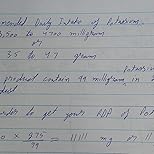 mended Daily Intake of Potassium
3,500 to 4700 milligrams
or
3.5 to 4.7 grams
Potassium is
product contain 99 milligram in
order to get your RDA of Pota
0 × 975/99 = 11111 mg or 11